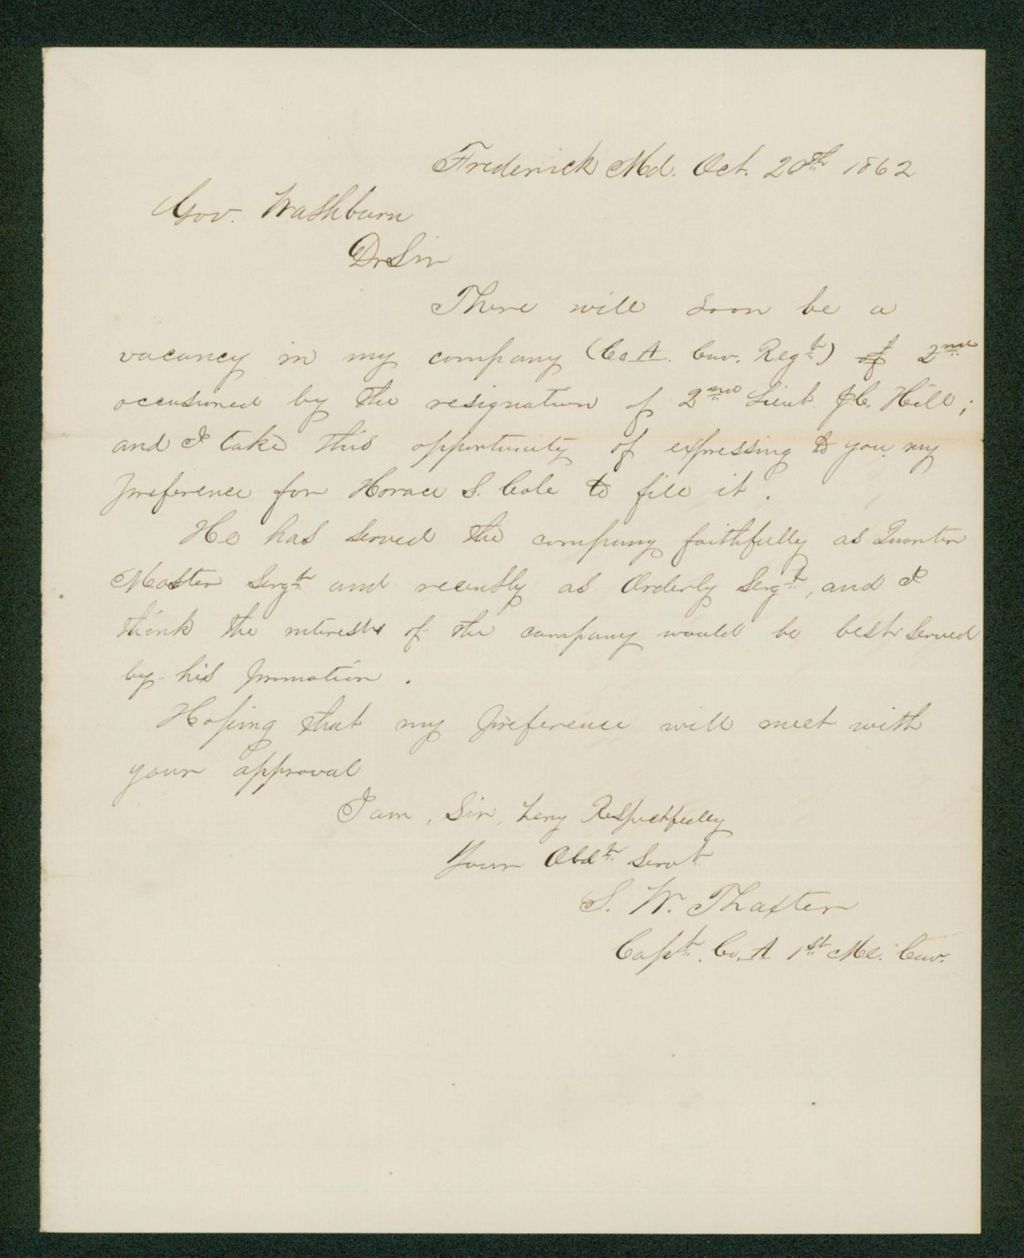 Frederick Md. Oct. 20th 1862
Gov. Washburn
Dr Sir
There will soon be a
vacancy in my company (Co A. Cav. Regt) of 2nd
occasioned by the resignation of 2nd Lieut Hill;
and I take this opportunity of expressing to you my
preference for Horace S. Cole to fill it.
He has served the company faithfully as Quarter
Master Sergt and recently as Orderly Sergt, and I
think the interests of the company would be best served
by his promotion.
Hoping that my preference will meet with
your approval
I am, Sir, Very Respectfully
Your Obdt Servt
S. W. Thaxter
Capt. Co. A 1st Me. Cav.